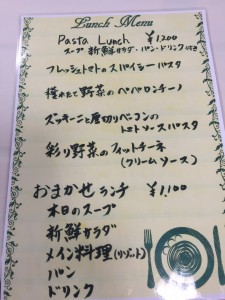 Lunch Menu
Pasta Lunch ¥1,200
スープ 新鮮サラダ・パン・ドリンク付き
フレッシュトマトのスパイシーパスタ
獲れたて野菜のペペロンチーノ
ズッキーニと厚切りベーコンの
トマトソースパスタ
彩り野菜のフィットチーネ
(クリームソース)
おまかせランチ ¥1,100
本日のスープ
新鮮サラダ
メイン料理(リゾット)
パン
ドリンク